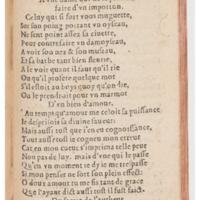 faire d'vn importun.
Celuy qui si fort vous muguette,
Sur son poing portant vn oyseau,
Ne sent point assez sa ciuette,
Pour contrefaire vn damoyseau,
A voir son nez & son museau,
Et sa barbe tant bien
A le voir quant il faut qu'il rie
Ou qu'il profere quelque mot
S'il estoit au bois quoy qu'on die,
On le prendroit pour vn marmot
D'en bien d'amour.
Au temps qu'amour me celoit sa puissance
Ie desprisoi sa diuine
Mais aussi tost que i'en eu cognoissance,
Tout aussi tost ie cogneu mon erreur
Car en mon cueur s'imprima telle peur
Non pas de luy, mais d'vne qui le passe
Qu'en vn moment ie dy ie me trespasse
Si mon penser ne sort son plein effect:
O doux amour tu me fis tant de grace
Que l'ayant dict aussi tost il fut faict.